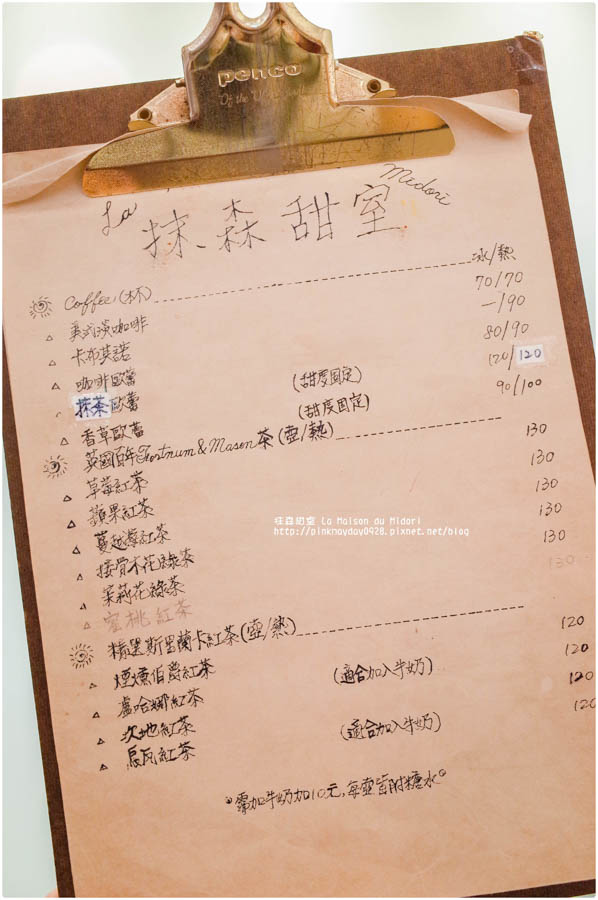 penco
La 抹森甜室 Midori
冰/熱
Coffee (杯)
美式淡咖啡 70/70
卡布其諾 —/90
咖啡歐蕾 80/90
抹茶歐蕾 (甜度固定) 120/120
香草歐蕾 (甜度固定) 90/100
英國百年Fortnum & Mason茶(壺/熱)
草莓紅茶 130
蘋果紅茶 130
蔓越莓紅茶 130
接骨木花綠茶 130
茉莉花綠茶 130
蜜桃紅茶 130
精選斯里蘭卡紅茶(壺/熱)
煙燻伯爵紅茶 120
盧哈娜紅茶 (適合加入牛奶) 120
次地紅茶 120
烏瓦紅茶 (適合加入牛奶) 120
需加牛奶加10元,每壺皆附糖水
抹森甜室 La Maison du Midori
http://pinkmayday0928.pixnet.net/blog